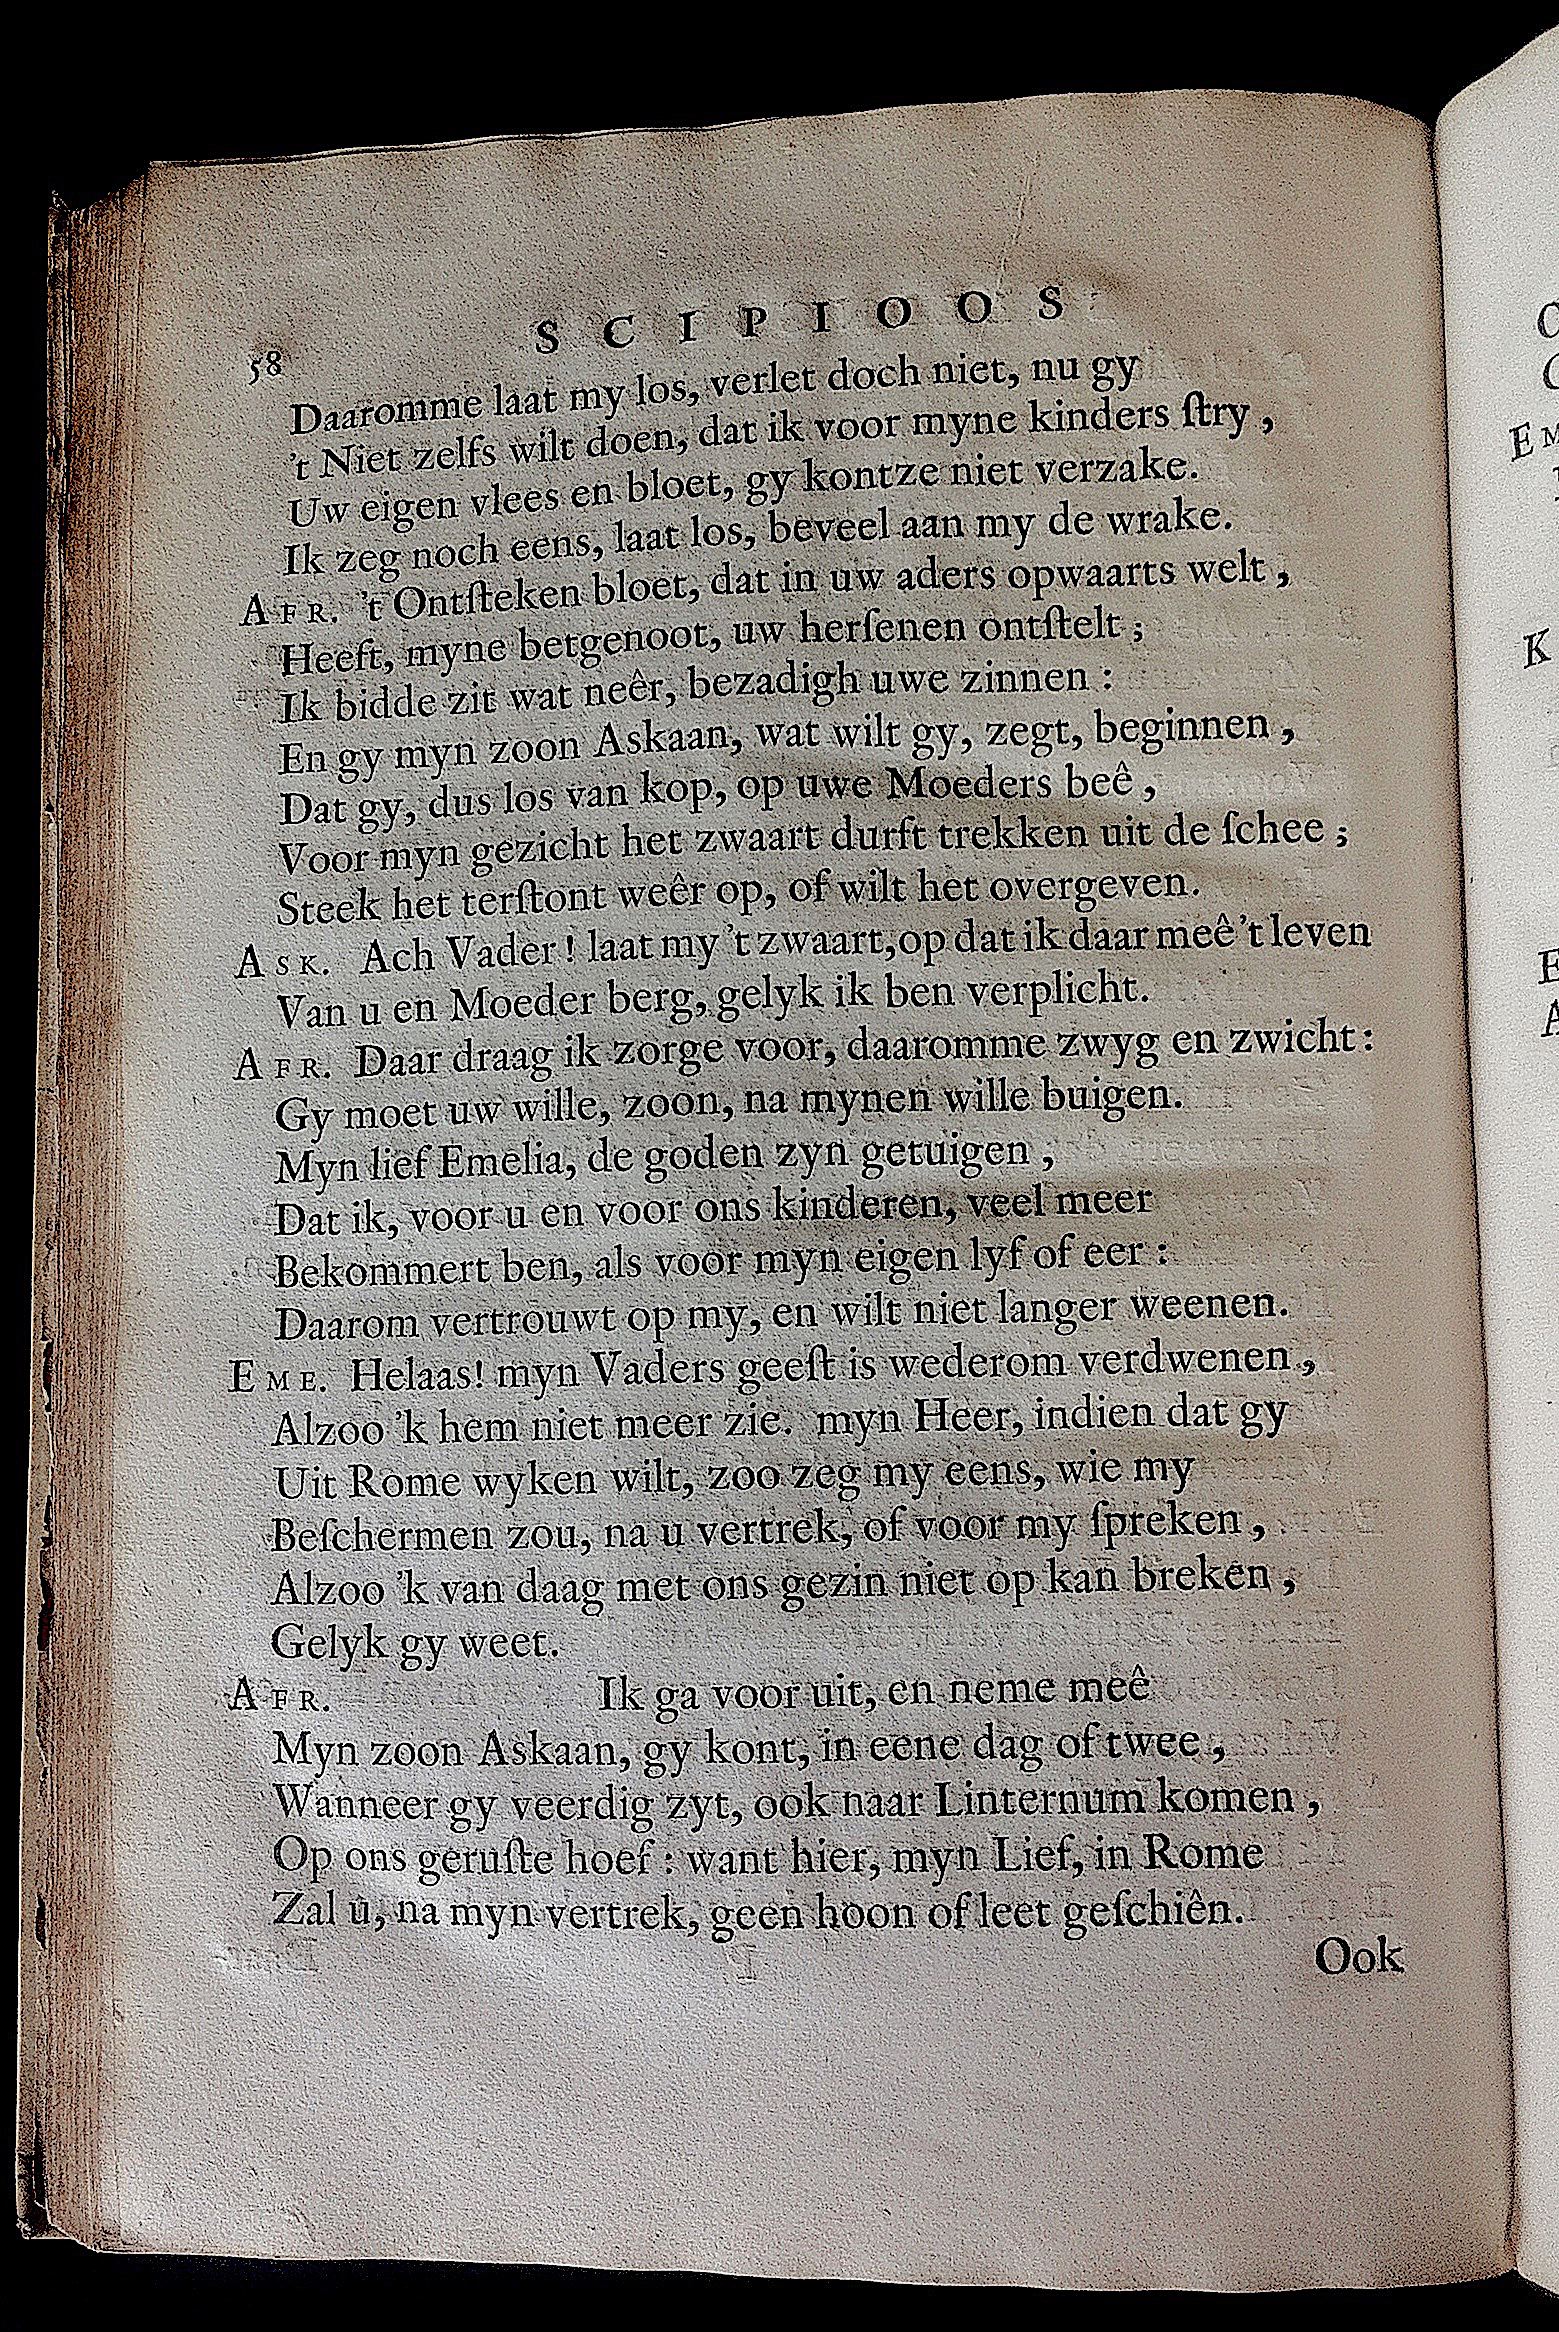 58 SCIPIOOS
Daaromme laat my los, verlet doch niet, nu gy
't Niet zelfs wilt doen, dat ik voor myne kinders ſtry,
Uw eigen vlees en bloet, gy kontze niet verzake.
Ik zeg noch eens, laat los, beveel aan my de wrake.
AFR. 't Ontſteken bloet, dat in uw aders opwaarts welt,
Heeft, myne betgenoot, uw herſenen ontſtelt;
Ik bidde zit wat neêr, bezadigh uwe zinnen:
En gy myn zoon Askaan, wat wilt gy, zegt, beginnen,
Dat gy, dus los van kop, op uwe Moeders beê,
Voor myn gezicht het zwaart durft trekken uit de ſchee;
Steek het terſtont weêr op, of wilt het overgeven.
ASK. Ach Vader! laat my 't zwaart, op dat ik daar meê 't leven
Van u en Moeder berg, gelyk ik ben verplicht.
AFR. Daar draag ik zorge voor, daaromme zwyg en zwicht:
Gy moet uw wille, zoon, na mynen wille buigen.
Myn lief Emelia, de goden zyn getuigen,
Dat ik, voor u en voor ons kinderen, veel meer
Bekommert ben, als voor myn eigen lyf of eer:
Daarom vertrouwt op my, en wilt niet langer weenen.
EME. Helaas! myn Vaders geeſt is wederom verdwenen,
Alzoo 'k hem niet meer zie. myn Heer, indien dat gy
Uit Rome wyken wilt, zoo zeg my eens, wie my
Beſchermen zou, na u vertrek, of voor my ſpreken,
Alzoo 'k van daag met ons gezin niet op kan breken,
Gelyk gy weet.
AFR. Ik ga voor uit, en neme meê
Myn zoon Askaan, gy kont, in eene dag of twee,
Wanneer gy veerdig zyt, ook naar Linternum komen,
Op ons geruſte hoef: want hier, myn Lief, in Rome
Zal u, na myn vertrek, geen hoon of leet geſchiên.
Ook